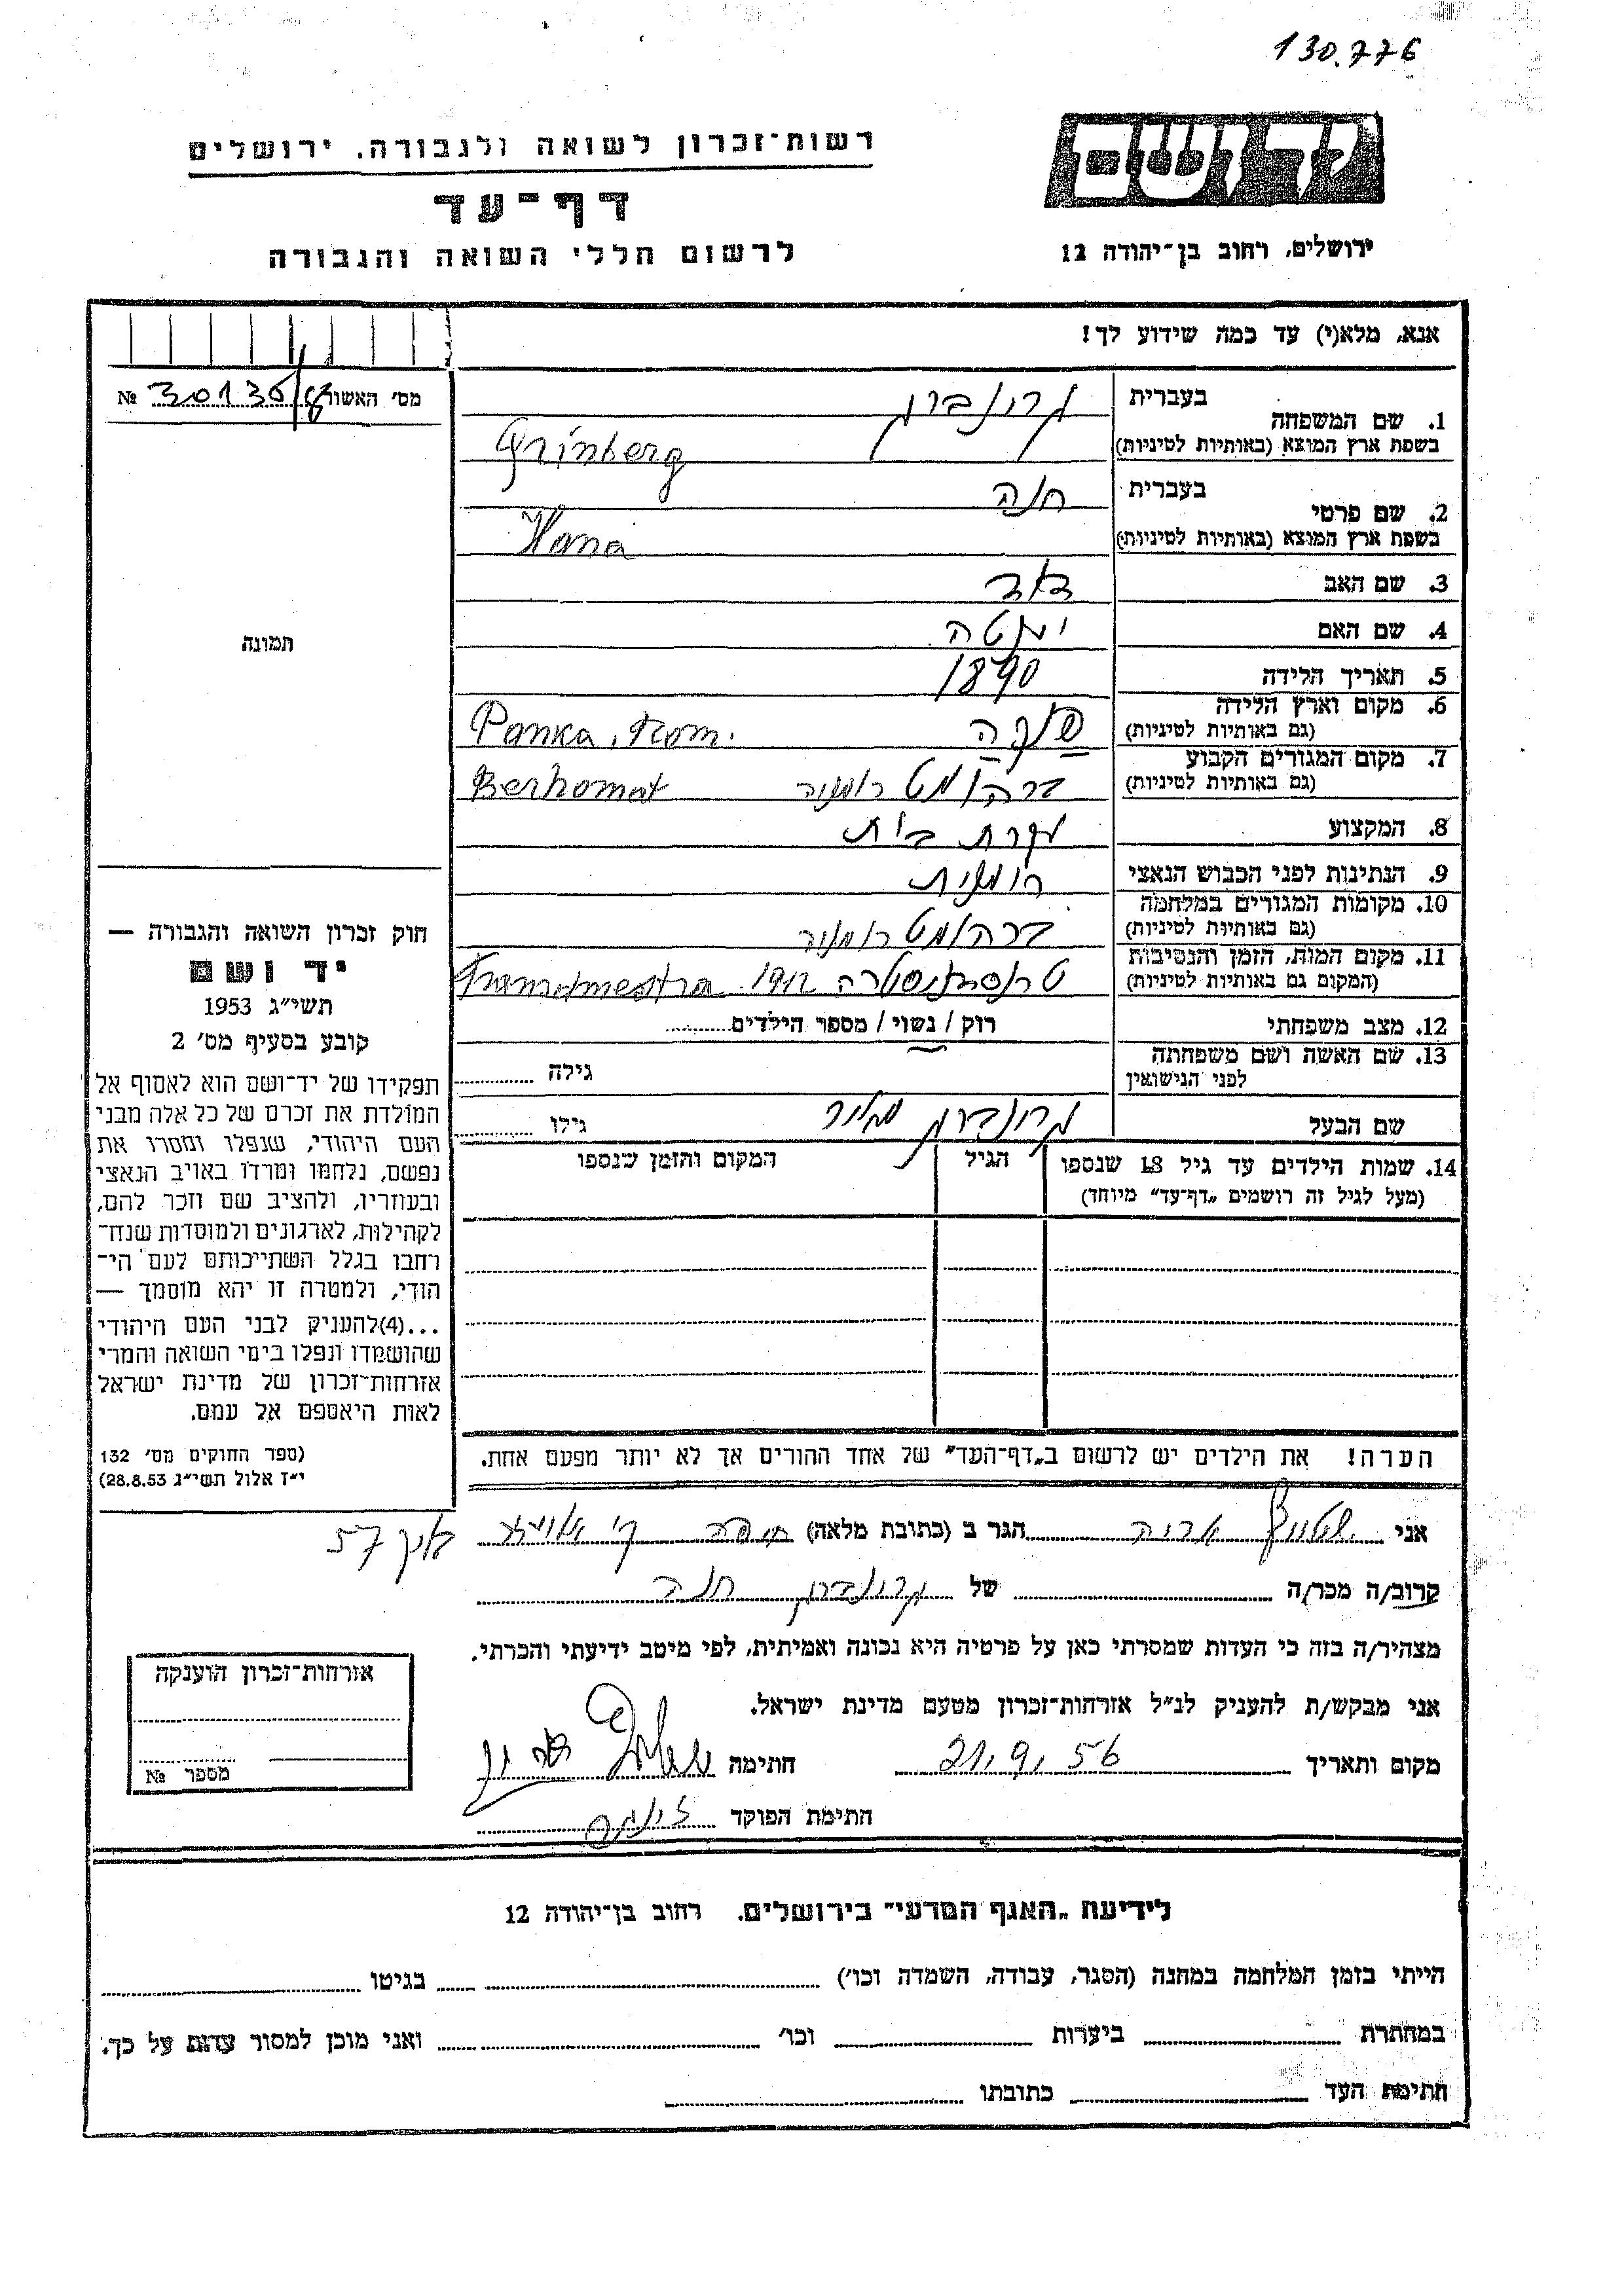 130.776
רשות-זכרון לשואה ולגבורה. ירושלים
דף-עד
לרשום חללי השואה והגבורה
יד ושם
ירושלים, רחוב בן-יהודה 12
אנא, מלא(י) עד כמה שידוע לך!
מס׳ האשור № 30130/68
תמונה
1. שם המשפחה בעברית גרונברג
בשפת ארץ המוצא (באותיות לטיניות) Grinberg
2. שם פרטי בעברית חנה
בשפת ארץ המוצא (באותיות לטיניות) Hana
3. שם האב
4. שם האם
5. תאריך הלידה 1890
6. מקום וארץ הלידה פנקה
(גם באותיות לטיניות) Panka, Rom.
7. מקום המגורים הקבוע ברהומט רומניה
(גם באותיות לטיניות) Berhomat
8. המקצוע עקרת בית
9. הנתינות לפני הכבוש הנאצי רומנית
10. מקומות המגורים במלחמה
(גם באותיות לטיניות) ברהומט רומניה
11. מקום המות, הזמן והנסיבות
(המקום גם באותיות לטיניות) טרנסניסטריה
12. מצב משפחתי רוק / נשוי / מספר הילדים
13. שם האשה ושם משפחתה
לפני הנישואין גילה
שם הבעל גרונברג מאיר גילו
14. שמות הילדים עד גיל 18 שנספו הגיל המקום והזמן שנספו
(מעל לגיל זה רושמים „דף-עד״ מיוחד)
חוק זכרון השואה והגבורה —
יד ושם
תשי״ג 1953
קובע בסעיף מס׳ 2
תפקידו של יד-ושם הוא לאסוף אל
המולדת את זכרם של כל אלה מבני
העם היהודי, שנפלו ומסרו את
נפשם, נלחמו ומרדו באויב הנאצי
ובעוזריו, ולהציב שם וזכר להם,
לקהילות, לארגונים ולמוסדות שנח־
רחבו בגלל השתייכותם לעם הי־
הודי, ולמטרה זו יהא מוסמך —
...(4)להעניק לבני העם היהודי
שהושמדו ונפלו בימי השואה והמרי
אזרחות-זכרון של מדינת ישראל
לאות היאספם אל עמם.
(ספר החוקים מס׳ 132
י״ז אלול תשי״ג 28.8.53)
הערה! את הילדים יש לרשום ב„דף-העד״ של אחד ההורים אך לא יותר מפעם אחת.
אני הגר ב (כתובת מלאה) חיפה 57
קרוב/ה מכר/ה של גרונברג חנה
מצהיר/ה בזה כי העדות שמסרתי כאן על פרטיה היא נכונה ואמיתית, לפי מיטב ידיעתי והכרתי.
אני מבקש/ת להעניק לנ״ל אזרחות-זכרון מטעם מדינת ישראל.
מקום ותאריך 21.9.56 חתימה
חתימת הפוקד
אזרחות-זכרון הוענקה
מספר №
לידיעת „האגף המדעי״ בירושלים. רחוב בן-יהודה 12
הייתי בזמן המלחמה במחנה (הסגר, עבודה, השמדה וכו׳) בגיטו
במחתרת ביערות וכו׳ ואני מוכן למסור עדות על כך.
חתימת העד כתובתו